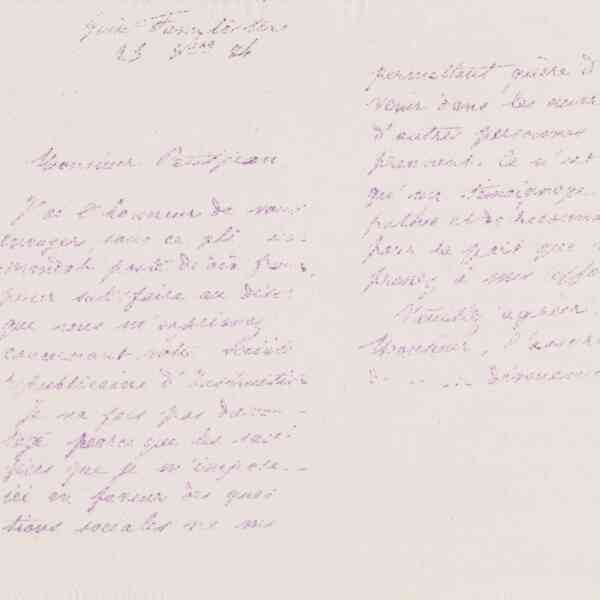 Guise Familistère
23 
Monsieur Petitjean
J'ai l'honneur de vous
envoyer sous ce pli un
mandat poste de dix francs,
pour satisfaire au désir
que vous m'exprimez
concernant votre société
républicaine d'instruction
je ne fais pas davan-
tage parce que les sacri-
fices que je m'impose
ici en faveur des ques-
tions sociales ne me
permettent guère d
venir dans les oeuvres
d'autres personnes
prennent. Ce n'est
qu'un témoignage
pour la part que
prenez à mes efforts
Veuillez agréer,
Monsieur, l'assura
dévouement